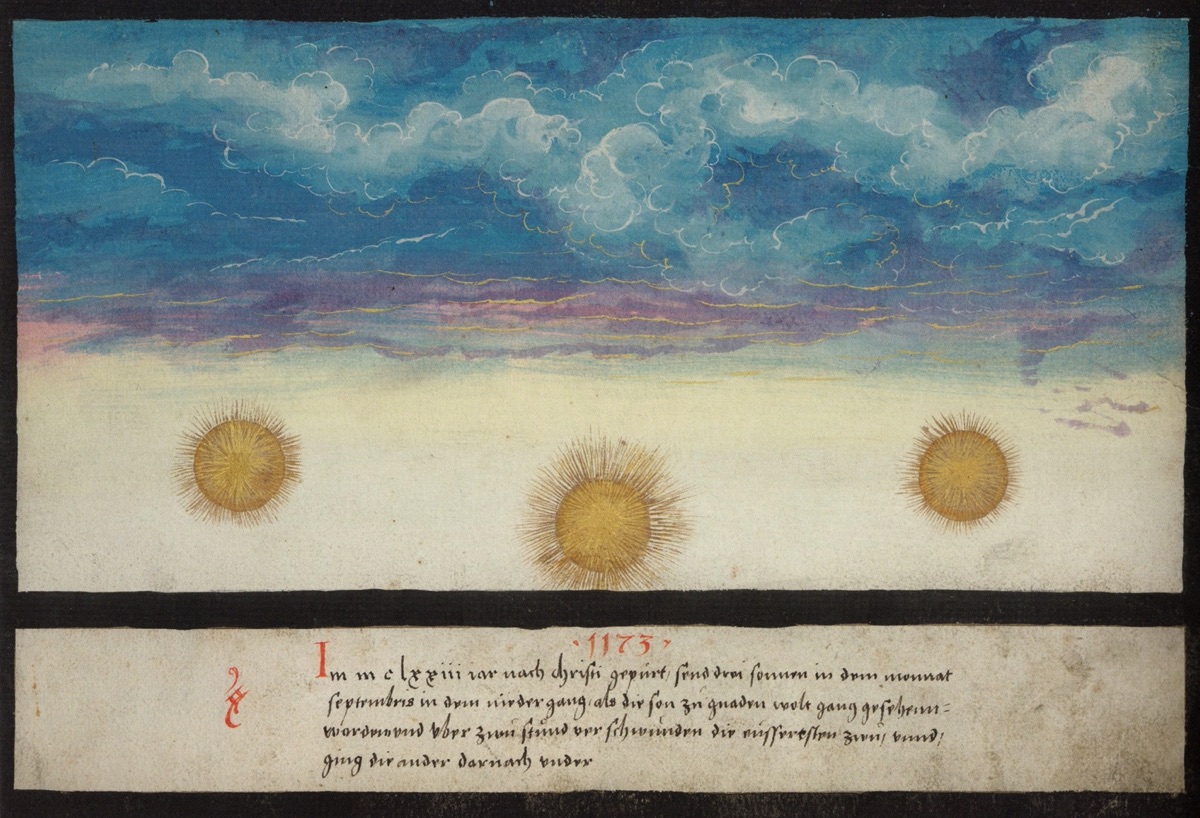 · 1173 ·
Im m c lxxiii iar nach christi gepürt / send drei sonnen in dem monnat
septembris in dem nider gang / als die son zu gnaden wolt gang gesehenn=
worden vnd vber zwu stund ver schwunden die eusseresten zwu / vnnd /
ging die ander darnach vnder